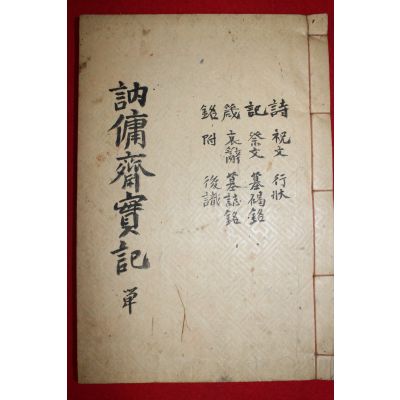 詩 祝文 行狀
記 祭文 墓碣銘
箴 哀辭 墓誌銘
銘 附 後識
訥傭齋實記 單